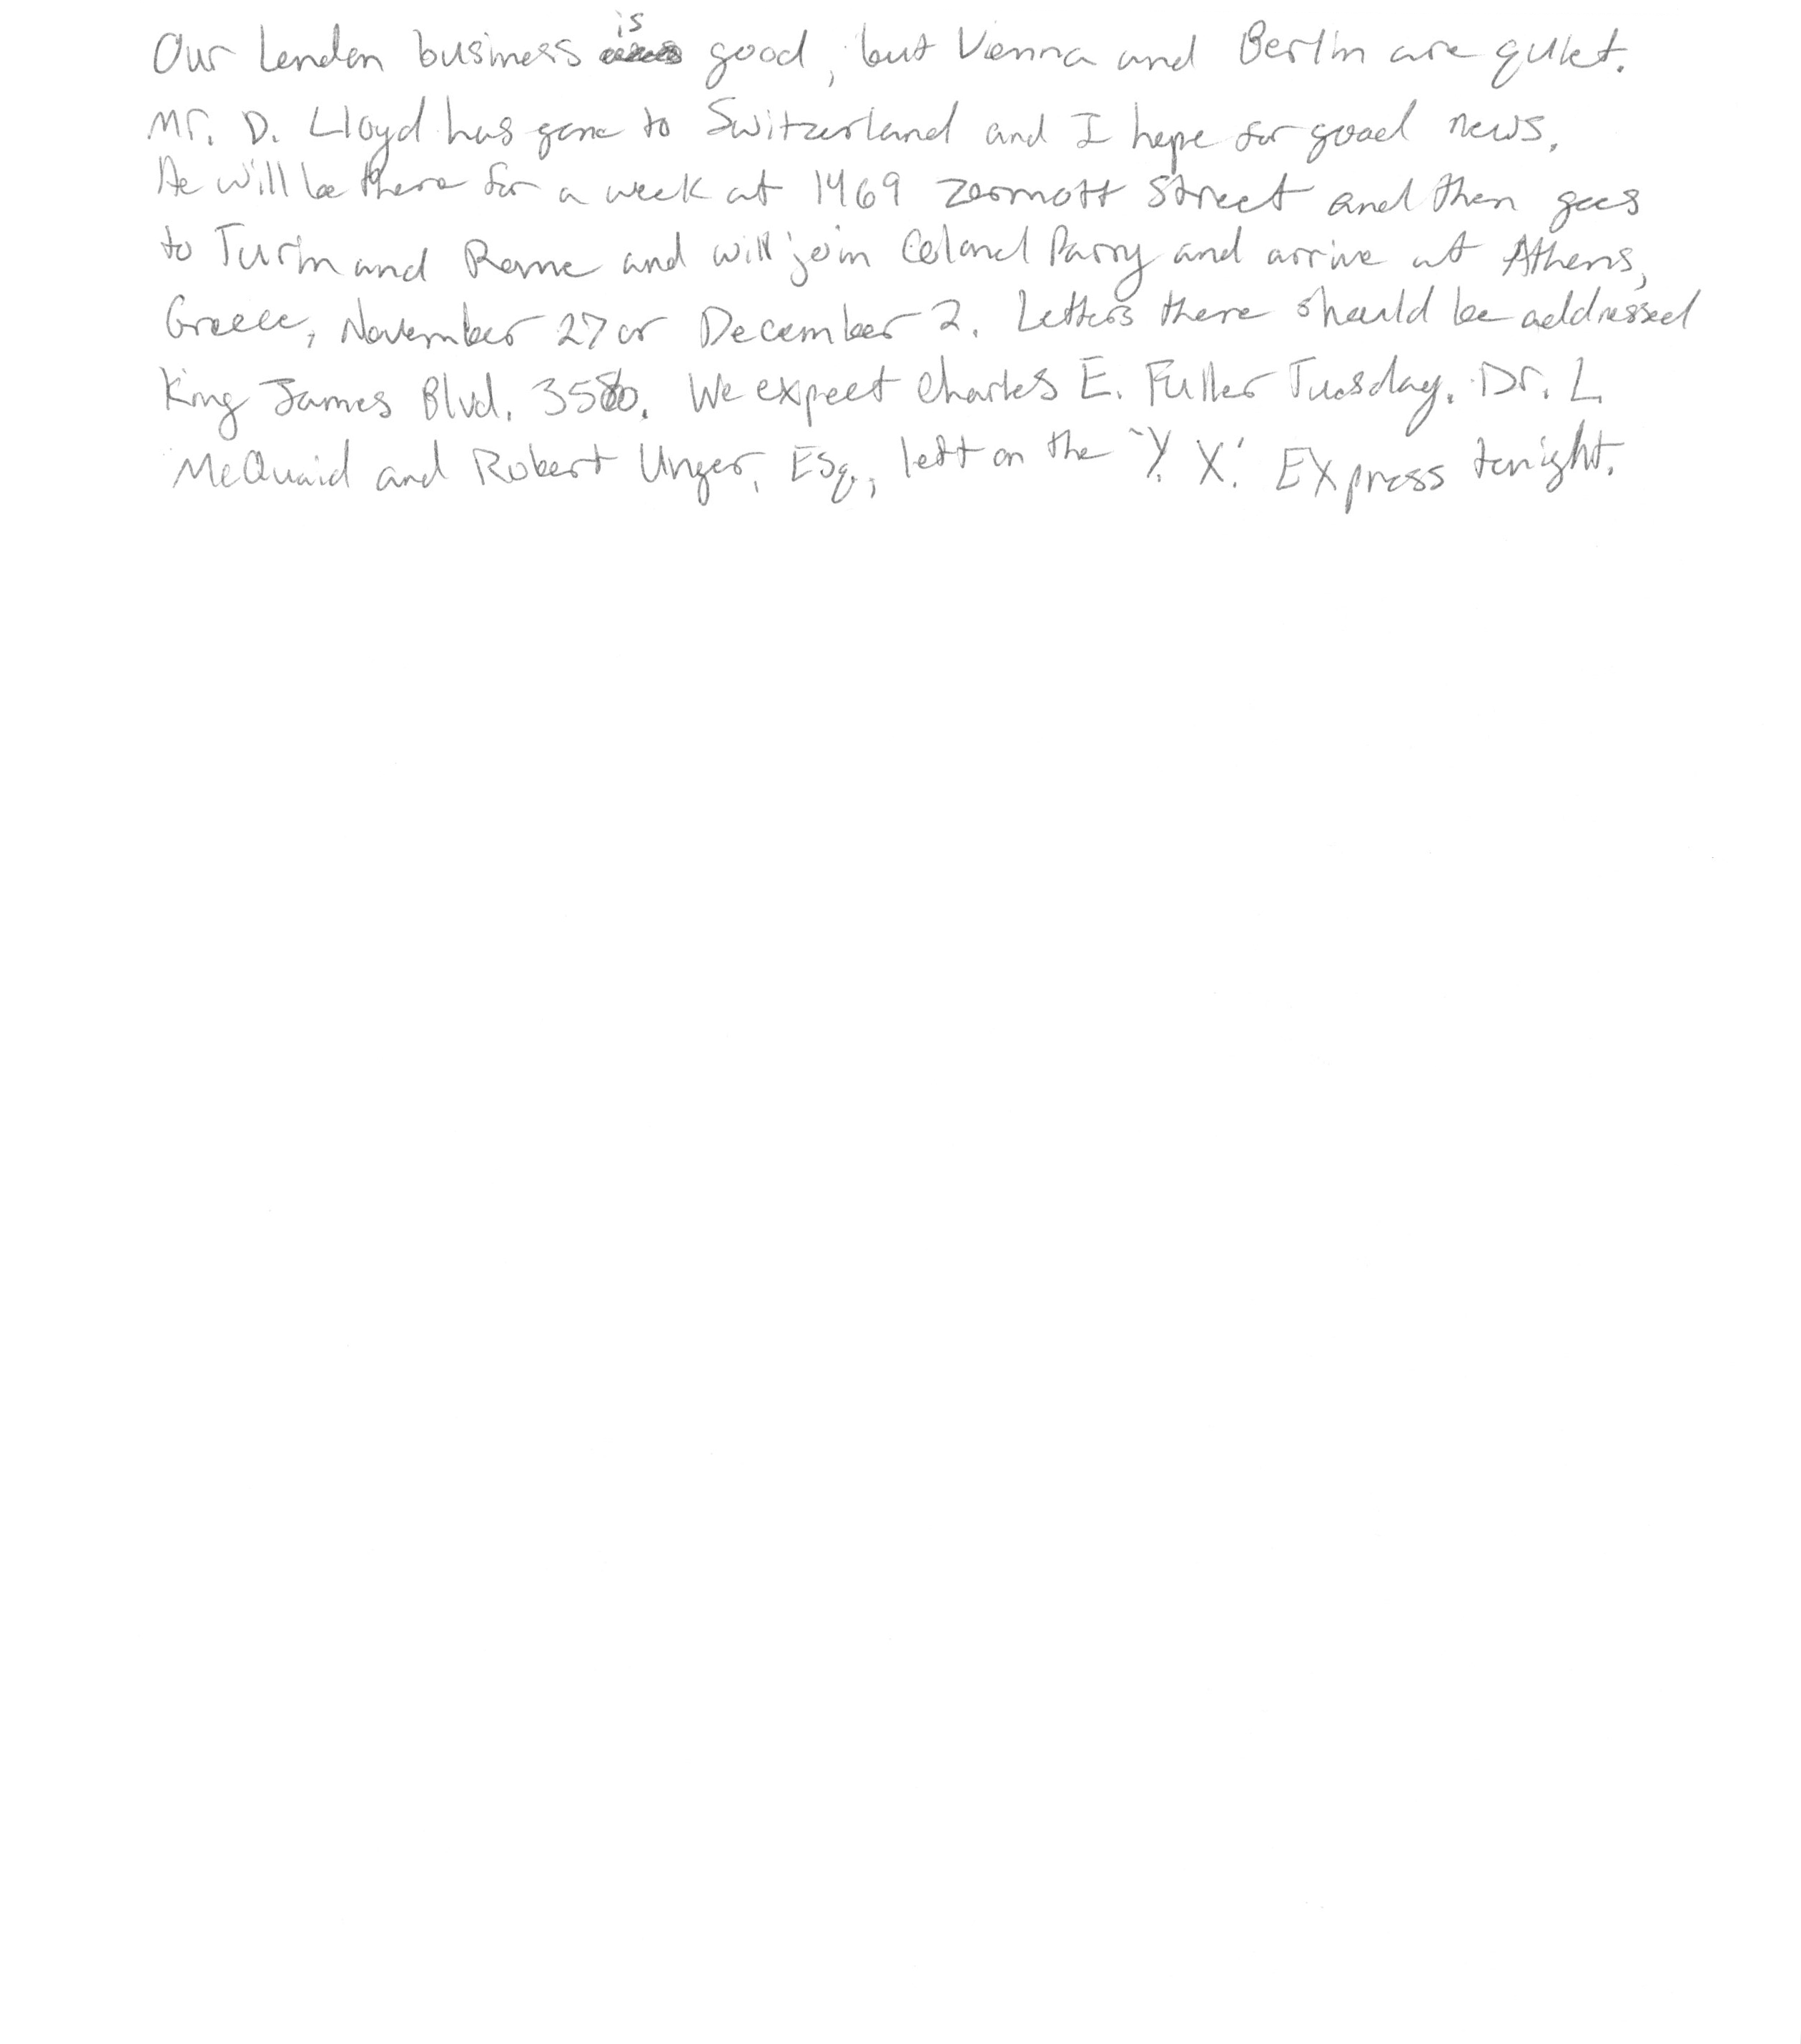 Our London business is good, but Vienna and Berlin are quiet.
Mr. D. Lloyd has gone to Switzerland and I hope for good news.
He will be there for a week at 1469 Zermott Street and then goes
to Turin and Rome and will join Colonel Parry and arrive at Athens,
Greece, November 27 or December 2. Letters there should be addressed
King James Blvd. 3580. We expect Charles E. Fuller Tuesday. Dr. L.
McQuaid and Robert Unger, Esq., left on the 'Y. X.' Express tonight.